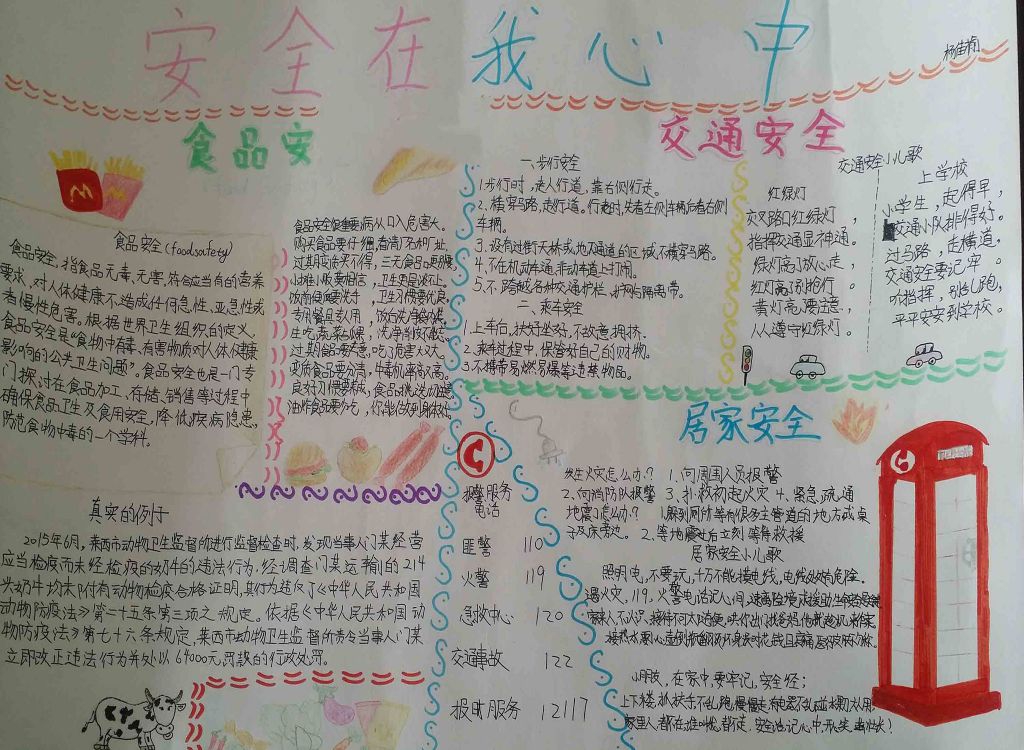 安全在我心中
杨佳楠
食品安
食品安全(foodsafety)
食品安全,指食品无毒、无害,符合应当有的营养
要求,对人体健康不造成任何急性、亚急性或
者慢性危害。根据世界卫生组织的定义,
食品安全是“食物中有毒、有害物质对人体健康
影响的公共卫生问题”。食品安全也是一门专
门探讨在食品加工、存储、销售等过程中
确保食品卫生及食用安全,降低疾病隐患,
防范食物中毒的一个学科。
食品安全很重要,病从口入危害大。
购买食品要仔细,查清厂名和厂址,
过期应该买不得,三无食品更别睬
小摊小贩要相信,卫生更是谈不上。
饭前便后要洗手,卫生习惯要优良,
生吃瓜果
过期食品要注意,吃了危害大又大。
变质食品要分清,
良好习惯要养成,食品挑选
油炸食品要少吃,
真实的例子
2015年6月,莱西市动物卫生监督所进行监督检查时,发现当事人门某经营
应当检疫而未经检疫的奶牛的违法行为。经调查门某运输的214
头奶牛均未附有动物检疫合格证明,其行为违反了《中华人民共和国
动物防疫法》第二十五条第三项之规定。依据《中华人民共和国动
物防疫法》第七十六条规定,莱西市动物卫生监督所责令当事人门某
立即改正违法行为并处以64000元罚款的行政处罚。
报警服务
电话
匪警 110
火警 119
急救中心 120
交通事故 122
报时服务 12117
交通安全
一、步行安全
1.步行时,走人行道,靠右侧行走。
2.横穿马路,走人行道。行走时,先看左侧车辆后看右侧
车辆。
3.没有过街天桥或地下通道的区域,不横穿马路。
4.不在机动车道,非动车道上打闹。
5.不跨越各种交通护栏,护网与隔离带。
二、乘车安全
1.上车后,扶好坐好,不故意拥挤。
2.乘车过程中,保管好自己的财物。
3.不携带易燃易爆等违禁物品。
交通安全小儿歌
红绿灯
交叉路口红绿灯,
指挥交通显神通。
绿灯亮了放心走,
红灯亮了别抢行。
黄灯亮了要注意,
人人遵守红绿灯。
上学校
小学生,起得早,
交通小队排得好。
过马路,走横道,
交通安全要记牢。
听指挥,别乱跑,
平平安安到学校。
居家安全
发生火灾怎么办? 1.向周围人员报警
2.向消防队报警 3.扑救初起火灾 4.紧急疏通
地震了怎么办? 1.躲到厕所等有很多主管道的地方或桌
子及床旁边。 2.等地震过后立刻等待救援
居家安全小儿歌
照明电,不要玩,千万不能摸电线,
遇火灾,119,火警电话记心间,
小朋友,在家中,要牢记,安全经;
上下楼,扶扶手,不乱跑,慢慢走,
TELEPHONE